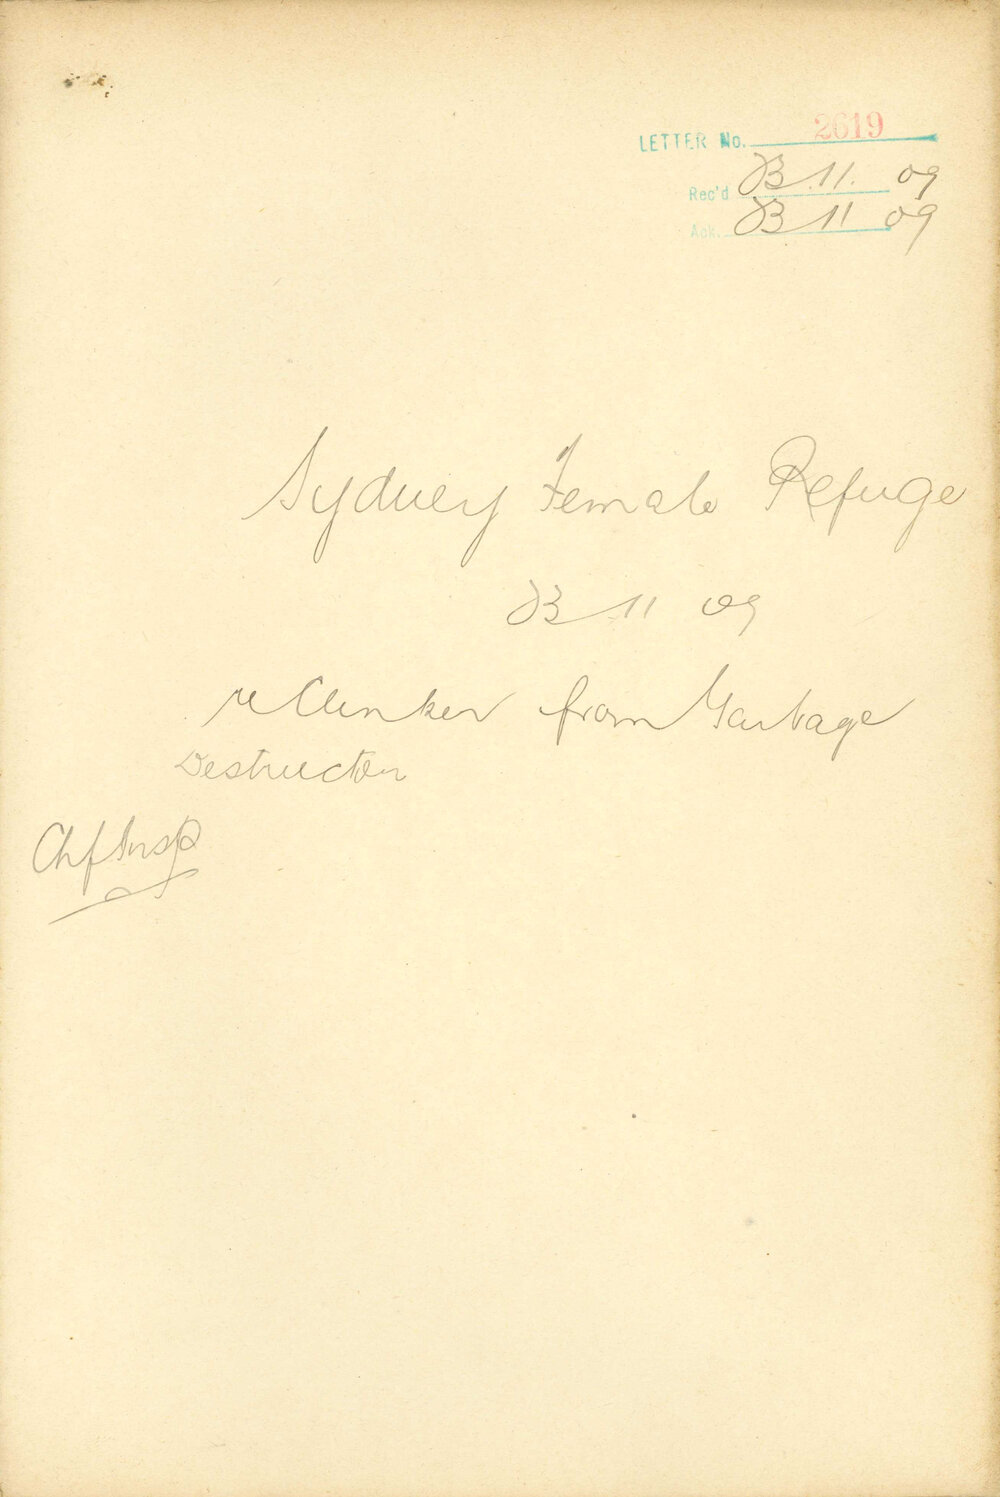 LETTER No. 2619
Rec'd 23.11.09
Ack. 23 11 09
Sydney Female Refuge
23 11 09
re Clinker from Garbage
Destructor
Chf Insp